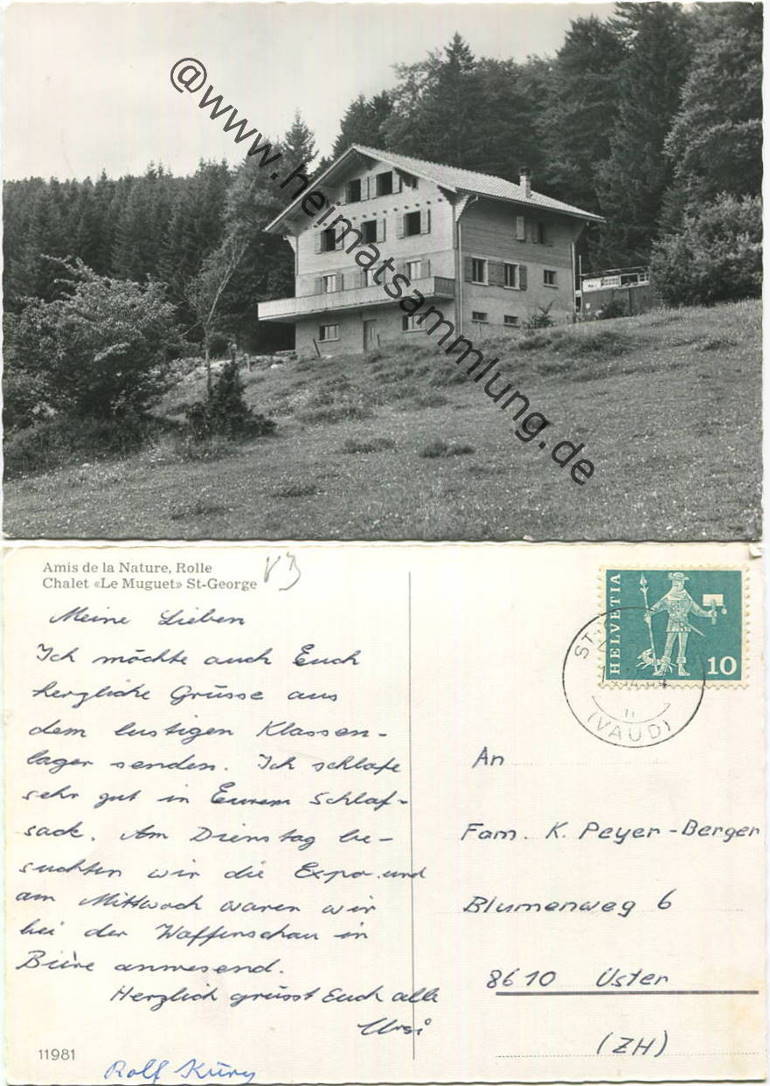 @www.heimatsammlung.de
Amis de la Nature, Rolle
Chalet «Le Muguet» St-George
Meine Lieben
Ich möchte auch Euch
herzliche Grüsse aus
dem lustigen Klassen-
lager senden. Ich schlafe
sehr gut in Eurem Schlaf-
sack. Am Dienstag be-
suchten wir die Expo und
am Mittwoch waren wir
bei der Waffenschau in
Bière anwesend.
Herzlich grüsst Euch alle
Ursi
Rolf Küry
11981
HELVETIA
10
ST
(VAUD)
An
Fam. K. Peyer-Berger
Blumenweg 6
8610 Uster
(ZH)